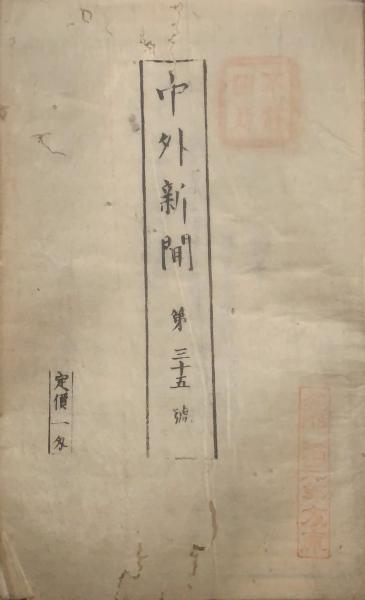 中外新聞 第三十五號
定價一匁